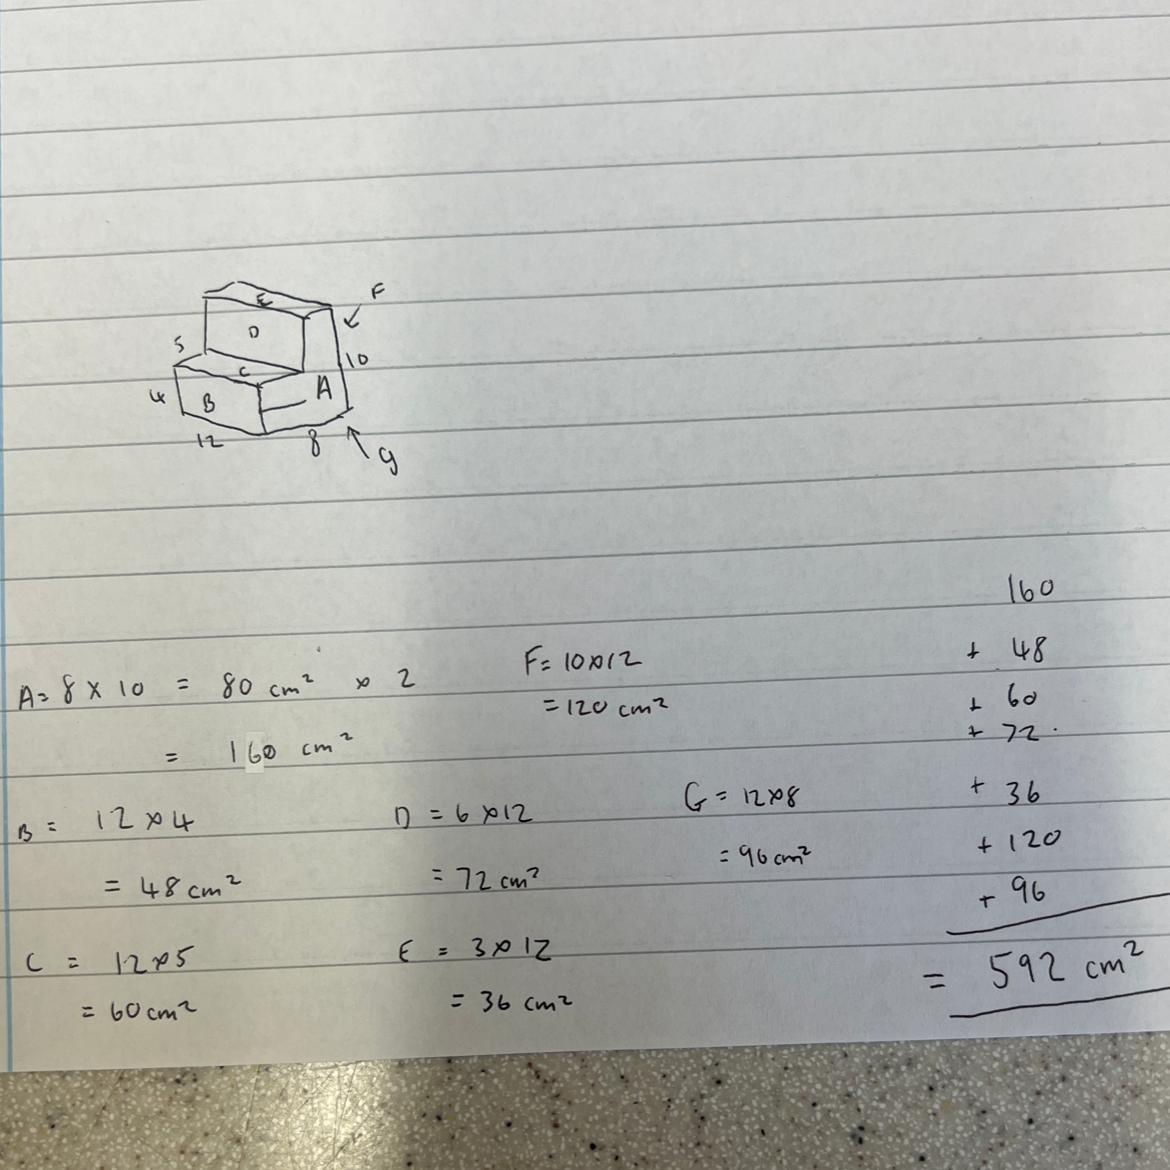 F
E
D
5
C
10
4
B
A
12
8
G
A = 8 × 10 = 80 cm² × 2
= 160 cm²
B = 12 × 4
= 48 cm²
C = 12 × 5
= 60 cm²
F = 10 × 12
= 120 cm²
D = 6 × 12
= 72 cm²
E = 3 × 12
= 36 cm²
G = 12 × 8
= 96 cm²
160
+ 48
+ 60
+ 72
+ 36
+ 120
+ 96
= 592 cm²